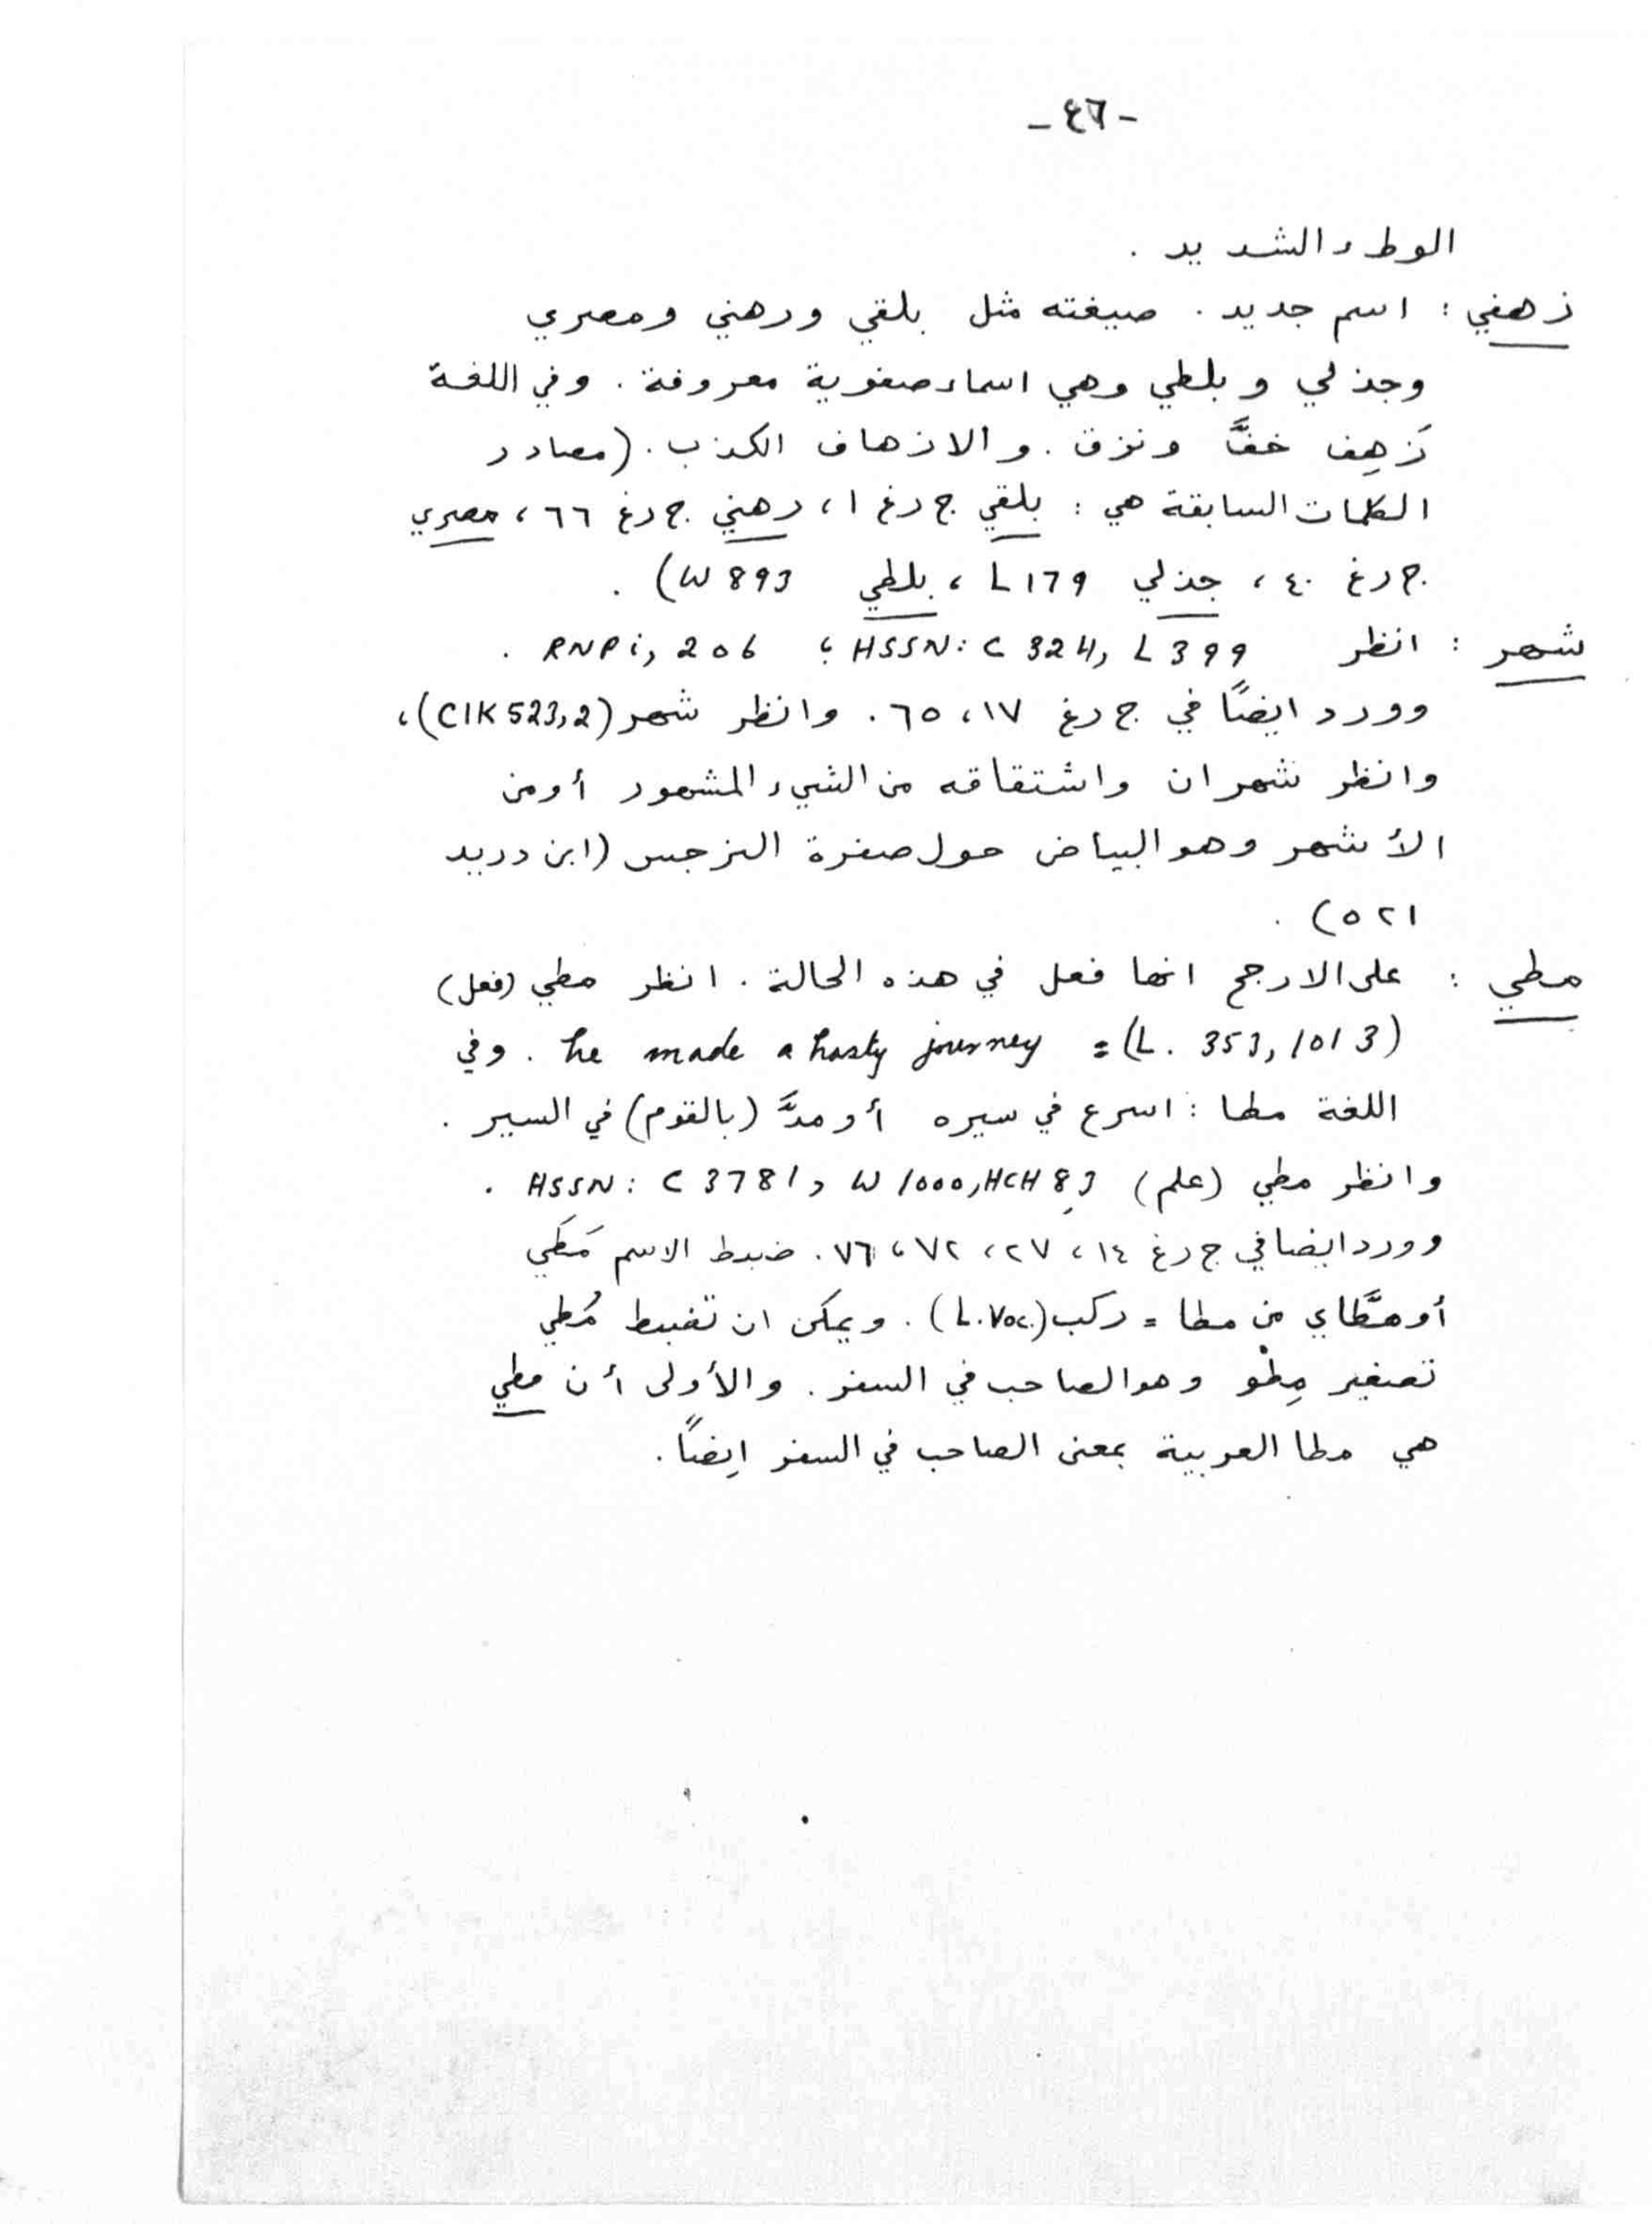 -٤٦-
الوطء الشديد .
زهفي : اسم جديد . صيغته مثل بلقي ورهني ومصري
وجذلي وبلطي وهي اسماء صفوية معروفة . وفي اللغة
زَهِف خفَّ ونزق . والازهاف الكذب . (مصادر
الكلمات السابقة هي : بلقي ج رغ ١ ، رهني ج رغ ٦٦ ، مصري
ج رغ ٤٠ ، جذلي L 179 ، بلطي W 893) .
شهر : انظر HSSN: C 324, L 399 ؛ RNP i, 206 .
وورد ايضاً في ج رغ ١٧ ، ٦٥ . وانظر شهر (CIK 523,2) ،
وانظر شهران واشتقاقه من الشيء المشهور أو من
الأشهر وهو البياض حول صفرة النرجس (ابن دريد
٥٢١) .
مطي : على الارجح انها فعل في هذه الحالة . انظر مطي (فعل)
(L. 353, 1013) = he made a hasty journey . وفي
اللغة مطا : اسرع في سيره أو مدَّ (بالقوم) في السير .
وانظر مطي (علم) HSSN: C 3781, W 1000, HCH 83 .
وورد ايضا في ج رغ ١٤ ، ٢٧ ، ٧٢ ، ٧٦ . ضبط الاسم مَطَي
أو مطَّاي من مطا = ركب (L.Voc.) . ويمكن ان تضبط مُطي
تصغير مِطْو وهو الصاحب في السفر . والأولى أن مطي
هي مطا العربية بمعنى الصاحب في السفر ايضاً .